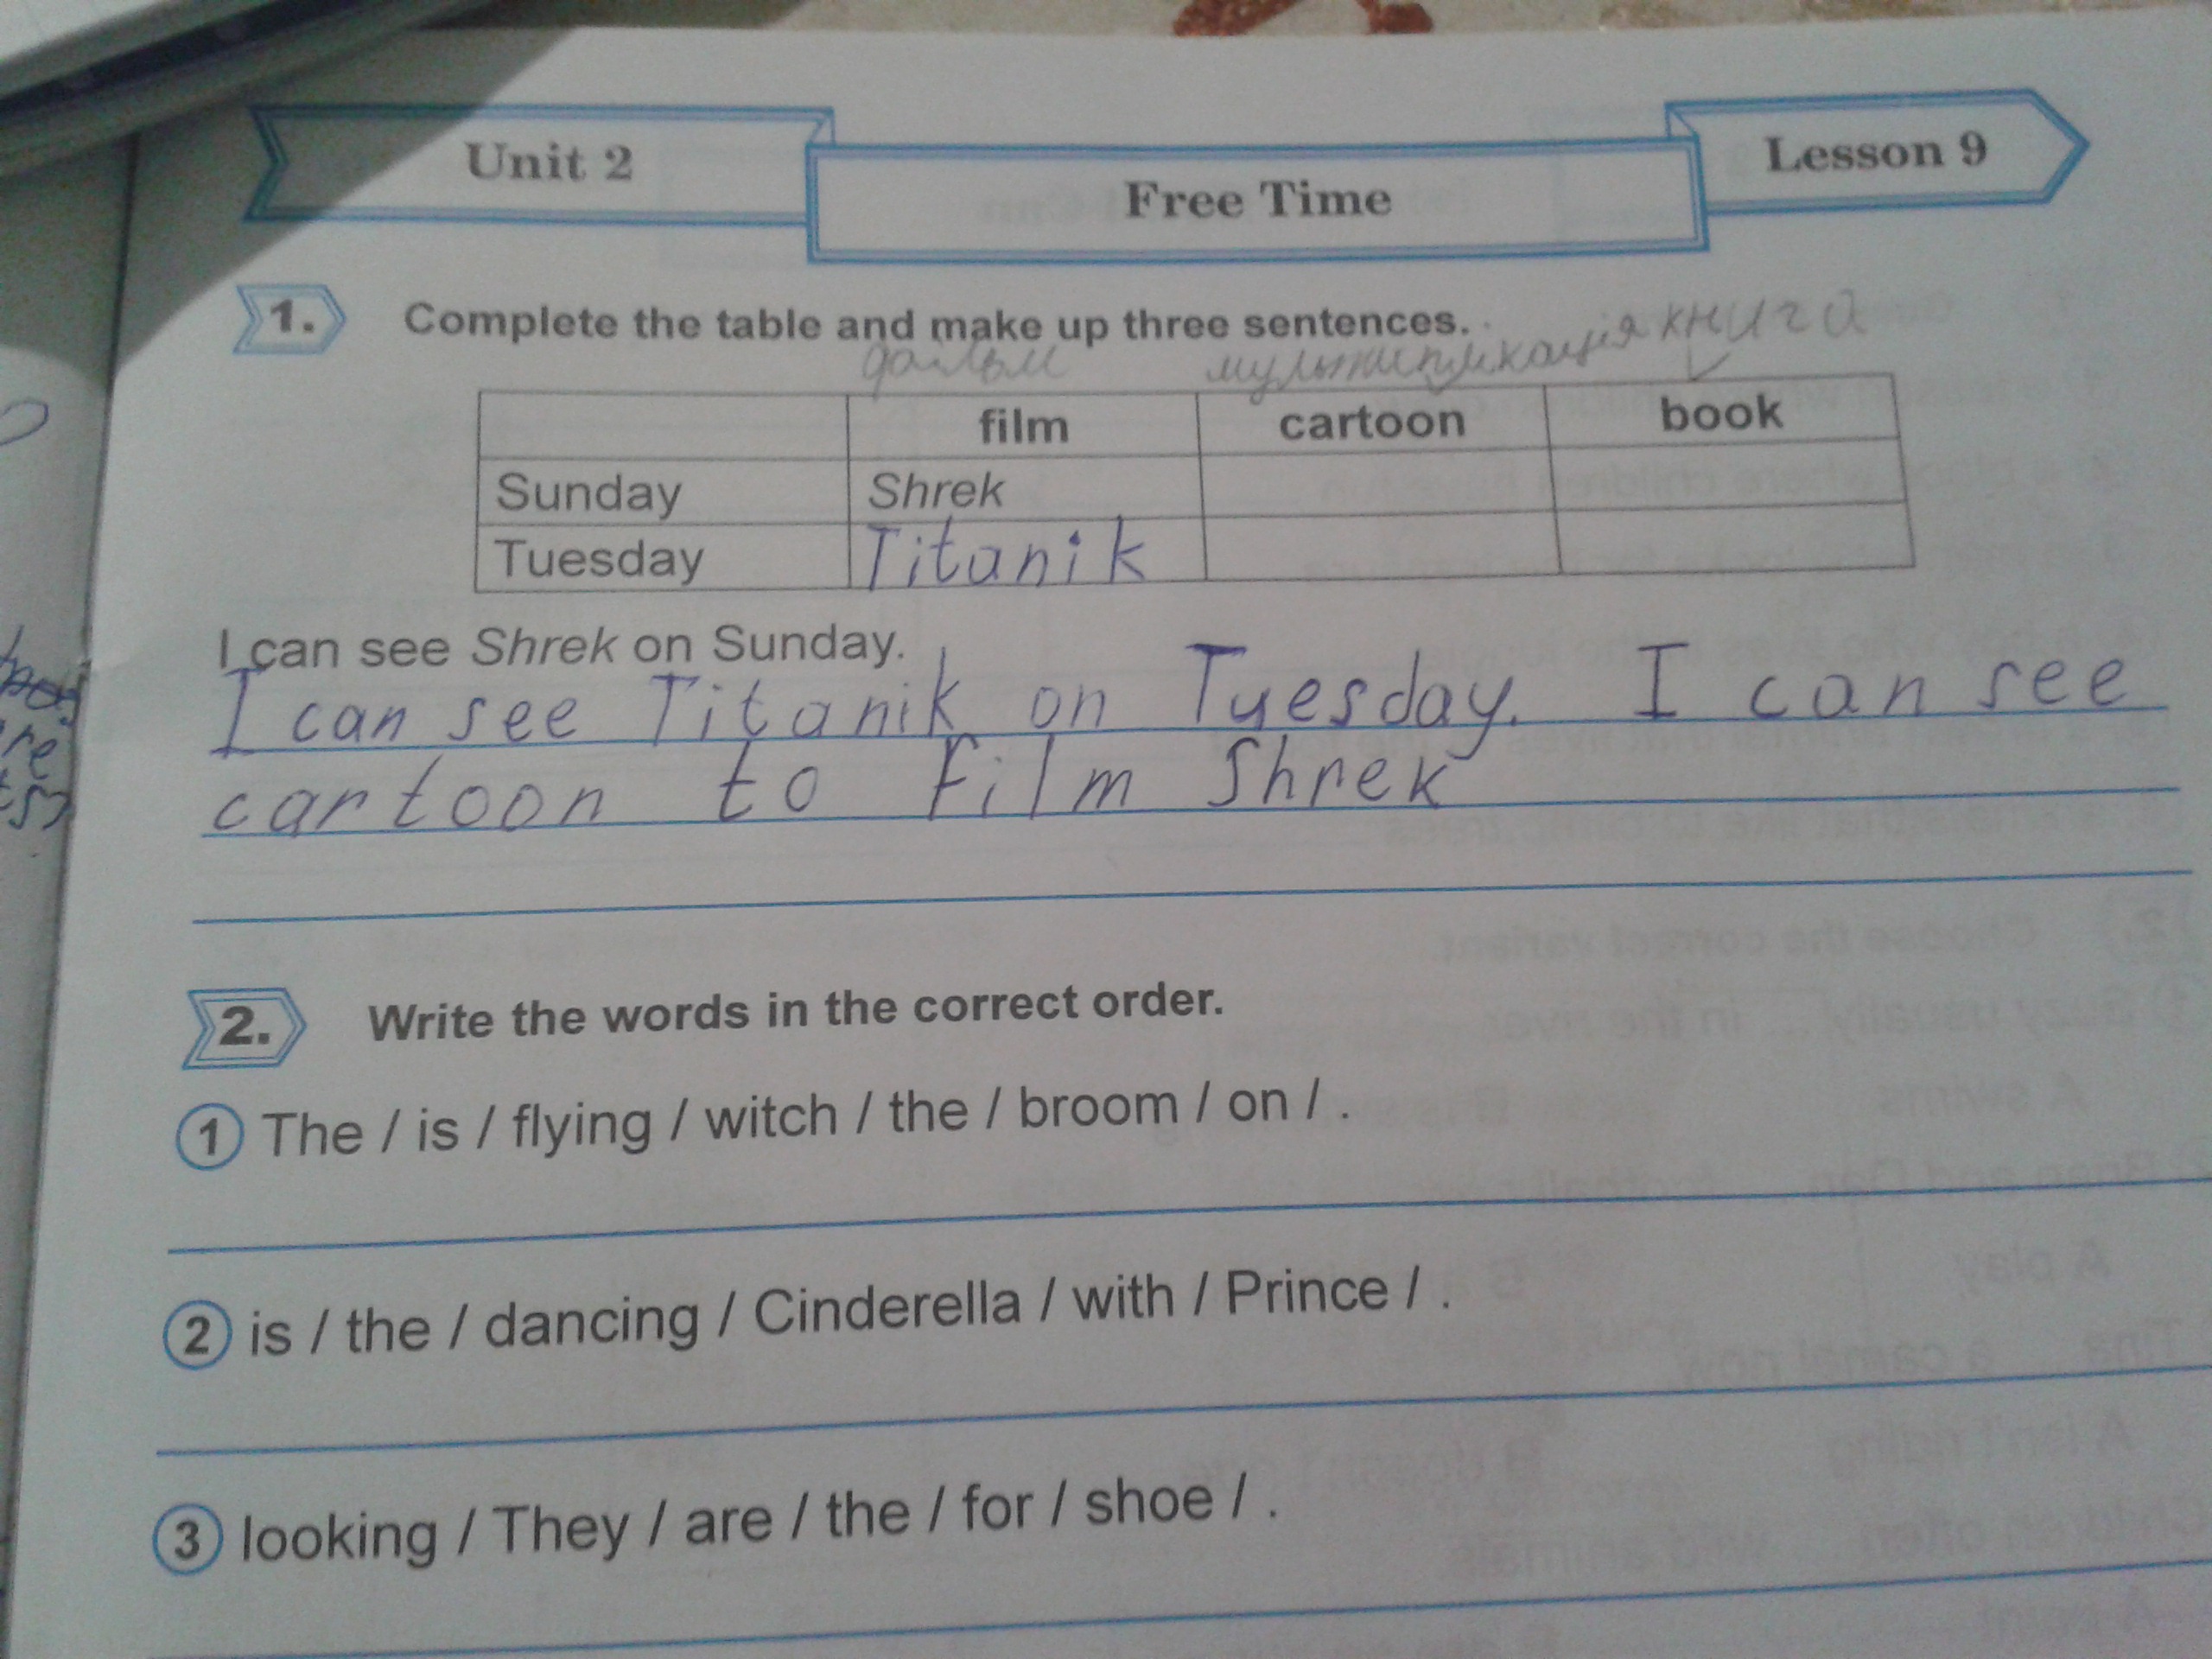 Unit 2
Free Time
Lesson 9
1. Complete the table and make up three sentences.
мультиплікація книга
film cartoon book
Sunday Shrek
Tuesday Titanik
I can see Shrek on Sunday.
I can see Titanik on Tuesday. I can see
cartoon to film Shrek
2. Write the words in the correct order.
1 The / is / flying / witch / the / broom / on / .
2 is / the / dancing / Cinderella / with / Prince / .
3 looking / They / are / the / for / shoe / .